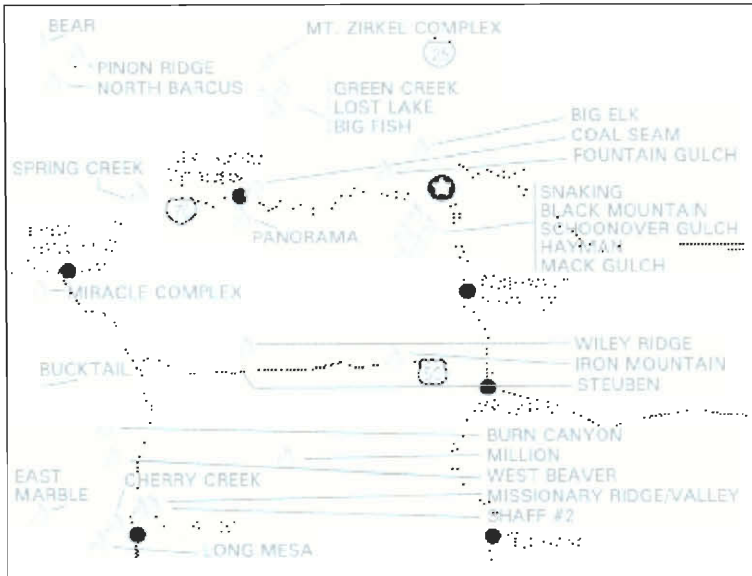 BEAR
MT. ZIRKEL COMPLEX
25
PINON RIDGE
NORTH BARCUS
GREEN CREEK
LOST LAKE
BIG FISH
BIG ELK
COAL SEAM
FOUNTAIN GULCH
SPRING CREEK
SNAKING
BLACK MOUNTAIN
SCHOONOVER GULCH
HAYMAN
MACK GULCH
PANORAMA
MIRACLE COMPLEX
WILEY RIDGE
IRON MOUNTAIN
STEUBEN
BUCKTAIL
50
BURN CANYON
MILLION
WEST BEAVER
MISSIONARY RIDGE/VALLEY
SHAFF #2
EAST
MARBLE
CHERRY CREEK
LONG MESA